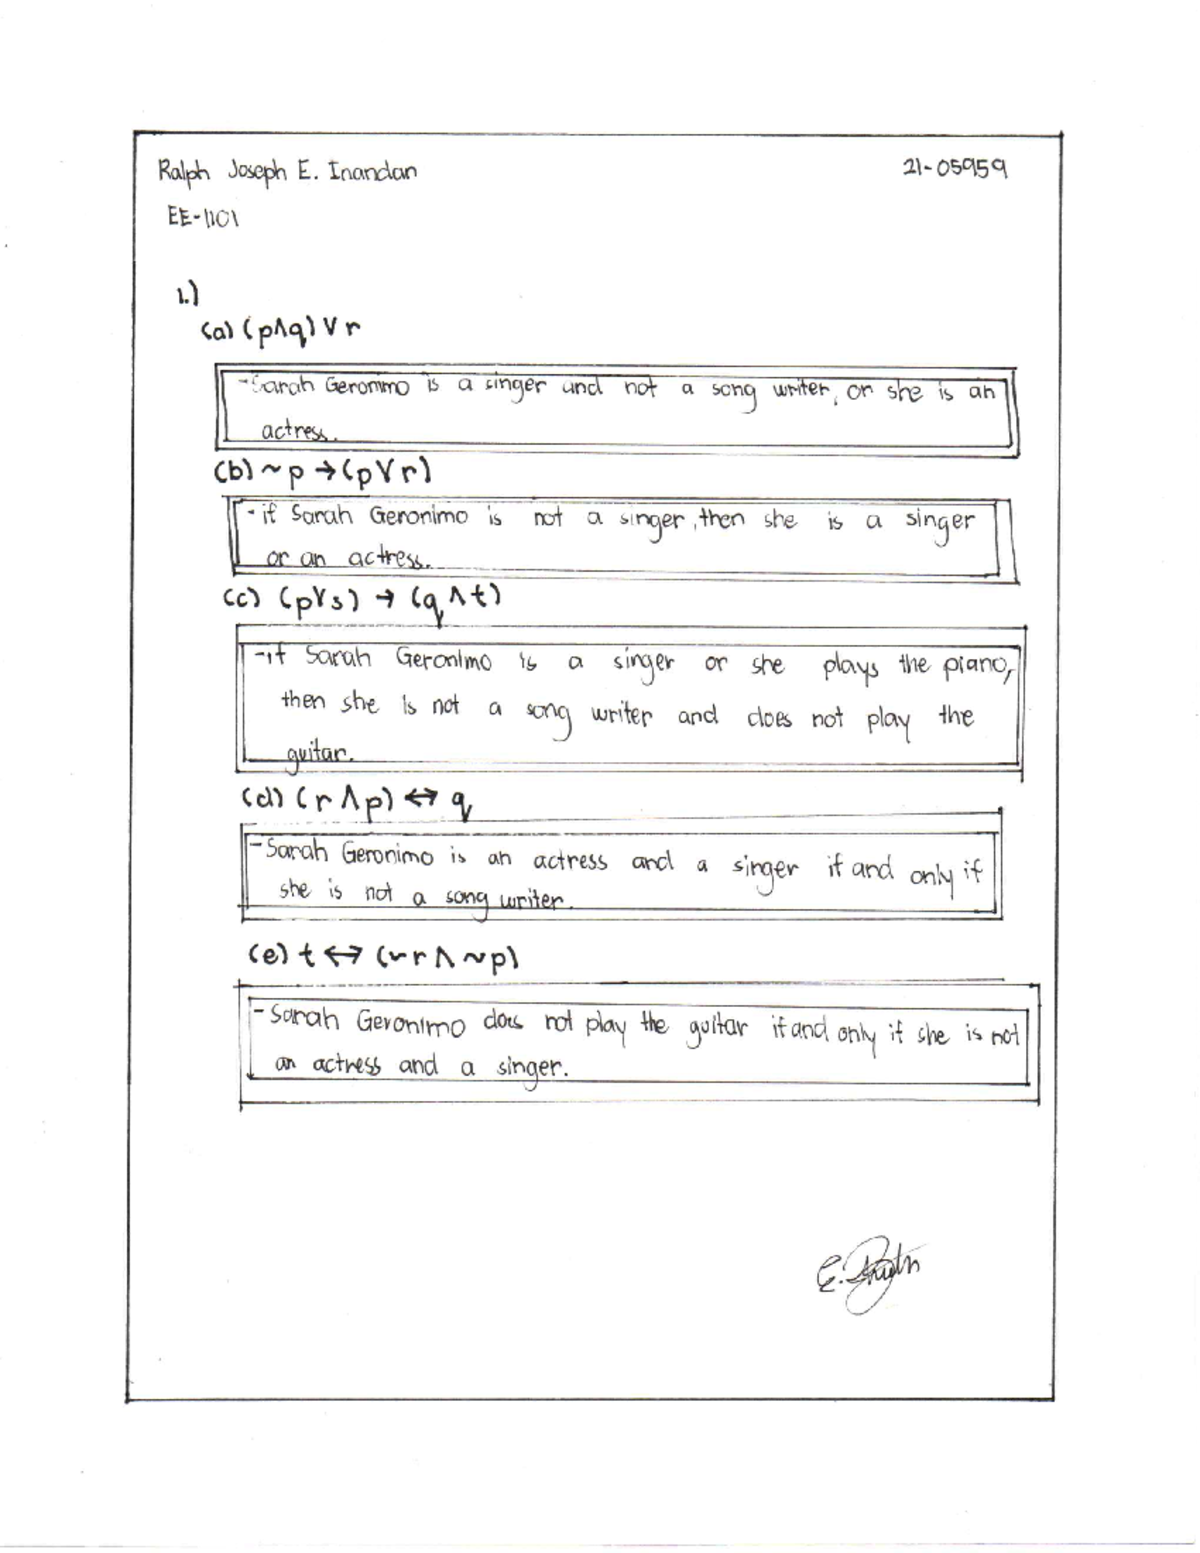 Ralph Joseph E. Inandan 21-05959
EE-1101
1.)
(a) (p∧q) ∨ r
-Sarah Geronimo is a singer and not a song writer, or she is an
actress.
(b) ~p → (p∨r)
-if Sarah Geronimo is not a singer, then she is a singer
or an actress.
(c) (p∨s) → (q∧t)
-if Sarah Geronimo is a singer or she plays the piano,
then she is not a song writer and does not play the
guitar.
(d) (r∧p) ↔ q
-Sarah Geronimo is an actress and a singer if and only if
she is not a song writer.
(e) t ↔ (~r∧~p)
-Sarah Geronimo does not play the guitar if and only if she is not
an actress and a singer.